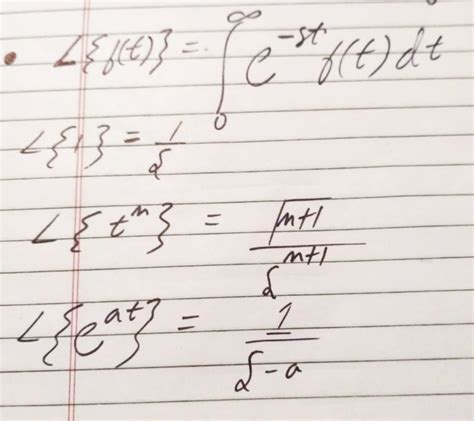 • L{f(t)} = ∫₀^∞ e^(-st) f(t) dt
L{1} = 1/s
L{t^n} = Γ(n+1)/s^(n+1)
L{e^(at)} = 1/(s-a)